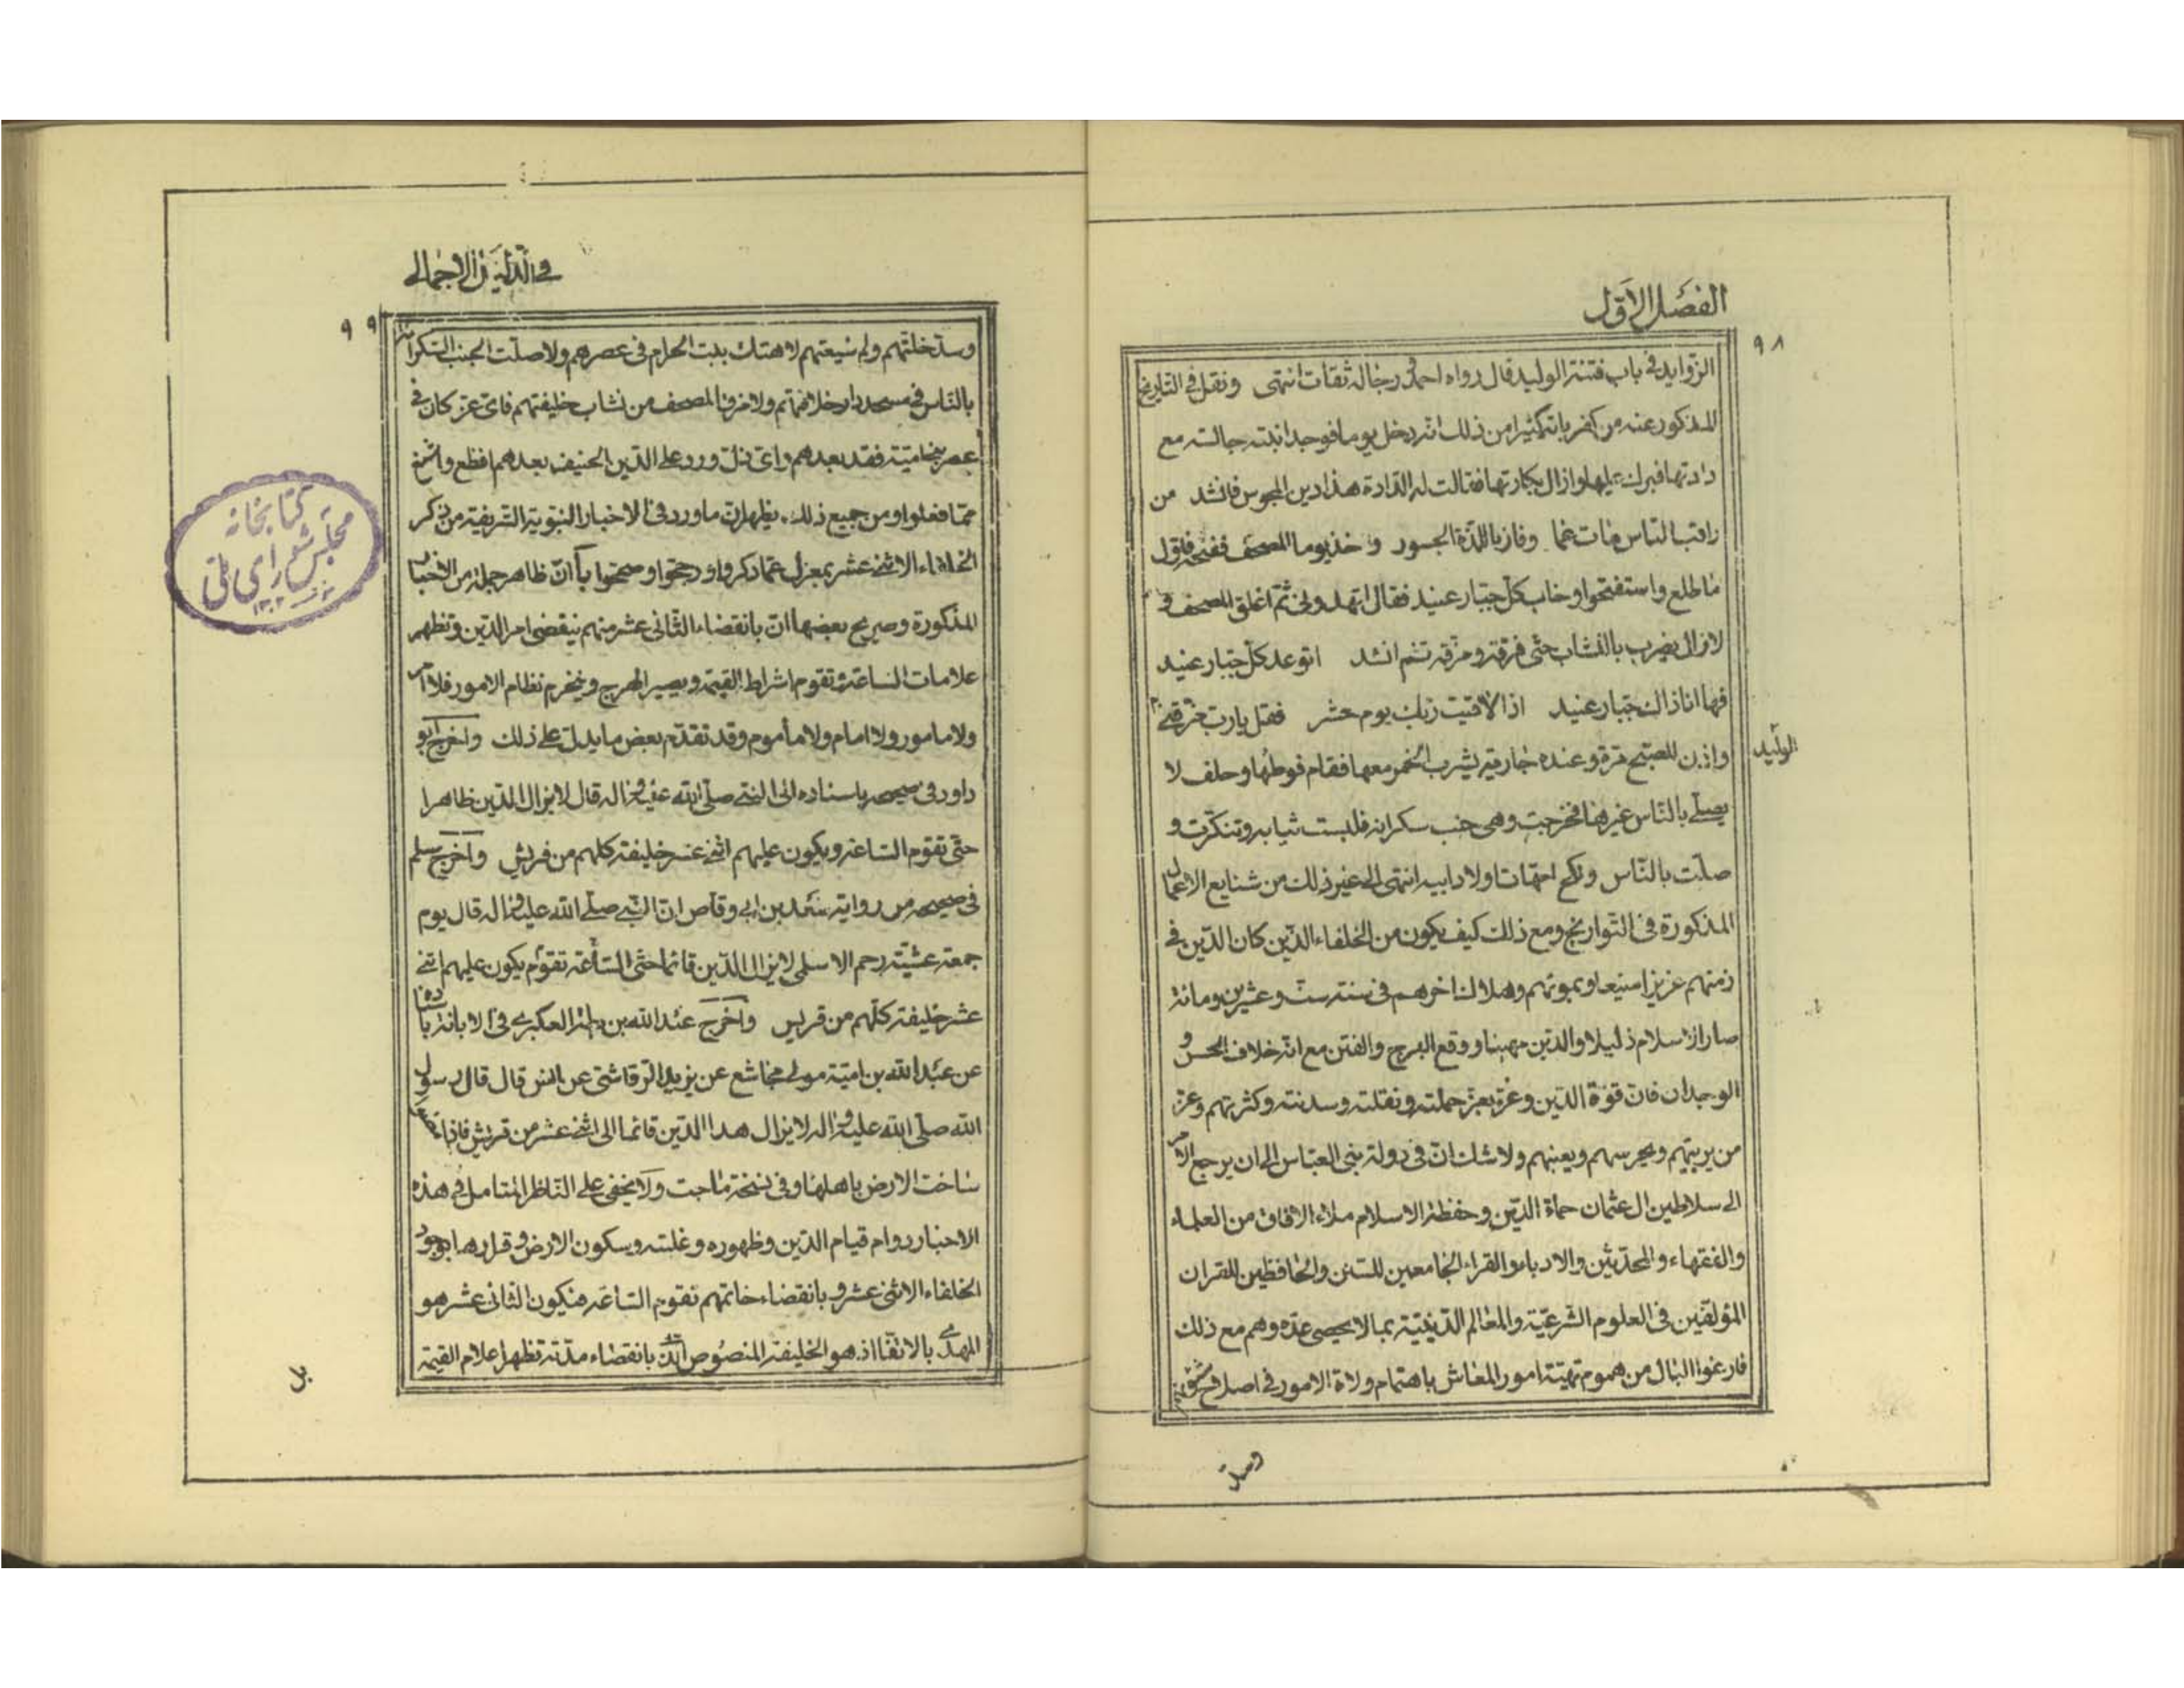 الفصل الاول
٩٨
الزوايد في باب فتنة الوليد قال رواه احمد و رجاله ثقات انتهى ونقل في التاريخ
المذكور عنه من كفرياته كثيرا من ذلك انه دخل يوما فوجد ابنته جالسة مع
دادتها فبرك عليها وازال بكارتها فقالت له الدادة هذا دين المجوس فانشد من
راقب الناس مات غما وفاز باللذة الجسور واخذ يوما المصحف ففتحه فاول
ما طلع واستفتحوا وخاب كل جبار عنيد فقال اتهددني ثم اغلق المصحف و
لا زال يضرب بالنشاب حتى خرقه ومزقه ثم انشد اتوعد كل جبار عنيد
فها انا ذاك جبار عنيد اذا لاقيت ربك يوم حشر فقل يا رب خرقني
الوليد
واذن للصبح مرة وعنده جارية يشرب الخمر معها فقام فوطئها وحلف لا
يصلي بالناس غيرها فخرجت وهي جنب سكرانة فلبست ثيابه وتنكرت و
صلت بالناس ونكح امهات اولاد ابيه انتهى الى غير ذلك من شنايع الاعمال
المذكورة في التواريخ ومع ذلك كيف يكون من الخلفاء الذين كان الدين في
زمنهم عزيزا منيعا وبموتهم وهلاك اخرهم في سنة ست وعشرين ومائة
صار الاسلام ذليلا والدين مهينا ووقع الهرج والفتن مع انه خلاف الحس و
الوجدان فان قوة الدين وعزه بعز حملته ونقلته وسدنته وكثرتهم وعز
من يربيهم ويحرسهم ويعينهم ولا شك ان في دولة بني العباس الى ان يرجع الامر
الى سلاطين ال عثمان حماة الدين وحفظة الاسلام ملاء الافاق من العلماء
والفقهاء والمحدثين والادباء والقراء الجامعين للسنن والحافظين للقران
المؤلفين في العلوم الشرعية والمعالم الدينية بما لا يحصى عده وهم مع ذلك
فارغوا البال من هموم تهيئة امور المعاش باهتمام ولاة الامور في اصلاح شؤنهم
في الدليل الاجمالي
٩٩
وسد خلتهم ولم شيعتهم لا هتك بيت الحرام في عصرهم ولا صلت الجنب السكرانة
بالناس في مسجد دار خلافتهم ولا خرق المصحف من نشاب خليفتهم فاي عز كان في
عصر بني امية فقد بعدهم واي ذل ورد على الدين الحنيف بعدهم افظع واشنع
مما فعلوا ومن جميع ذلك يظهر ان ما ورد في الاخبار النبوية الشريفة من ذكر
الخلفاء الاثني عشر بمعزل عما ذكروا ورجحوا وصححوا بل ان ظاهر جملة من الاخبار
المذكورة وصريح بعضها ان بانقضاء الثاني عشر منهم ينقضي امر الدين وتظهر
علامات الساعة وتقوم اشراط القيمة ويصير الهرج وينخرم نظام الامور فلا امر
ولا مامور ولا امام ولا مأموم وقد تقدم بعض ما يدل على ذلك واخرج ابو
داود في صحيحه باسناده الى النبي صلى الله عليه واله قال لا يزال الدين ظاهرا
حتى تقوم الساعة ويكون عليهم اثني عشر خليفة كلهم من قريش واخرج مسلم
في صحيحه من رواية سعد بن ابي وقاص ان النبي صلى الله عليه واله قال يوم
جمعة عشية رجم الاسلمي لا يزال الدين قائما حتى الساعة تقوم يكون عليهم اثني
عشر خليفة كلهم من قريش واخرج عبد الله بن بطة العكبري في الابانة باسناده
عن عبد الله بن امية مولى مجاشع عن يزيد الرقاشي عن انس قال قال رسول
الله صلى الله عليه واله لا يزال هذا الدين قائما الى اثني عشر من قريش فاذا مضوا
ساخت الارض باهلها وفي نسخة ماجت ولا يخفى على الناظر المتامل في هذه
الاخبار دوام قيام الدين وظهوره وغلبته وسكون الارض وقرارها بوجود
الخلفاء الاثنى عشر و بانقضاء خاتمهم تقوم الساعة فيكون الثاني عشر هو
المهدي بالاتفاق اذ هو الخليفة المنصوص الذي بانقضاء مدته تظهر اعلام القيمة
كتابخانه
مجلس شورای ملی
وسد
بل